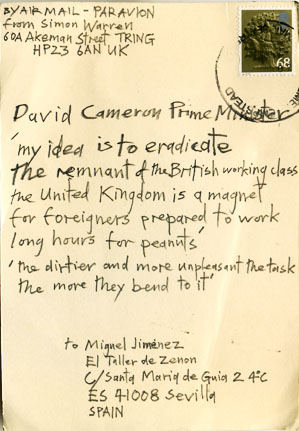 BY AIR MAIL - PAR AVION
from Simon Warren
60A Akeman Street TRING
HP23 6AN UK
68
David Cameron Prime Minister
'my idea is to eradicate
the remnant of the British working class
the United Kingdom is a magnet
for foreigners prepared to work
long hours for peanuts'
'the dirtier and more unpleasant the task
the more they bend to it'
to Miguel Jiménez
El Taller de Zenon
C/ Santa Maria de Guia 2 4ºC
ES 41008 Sevilla
SPAIN